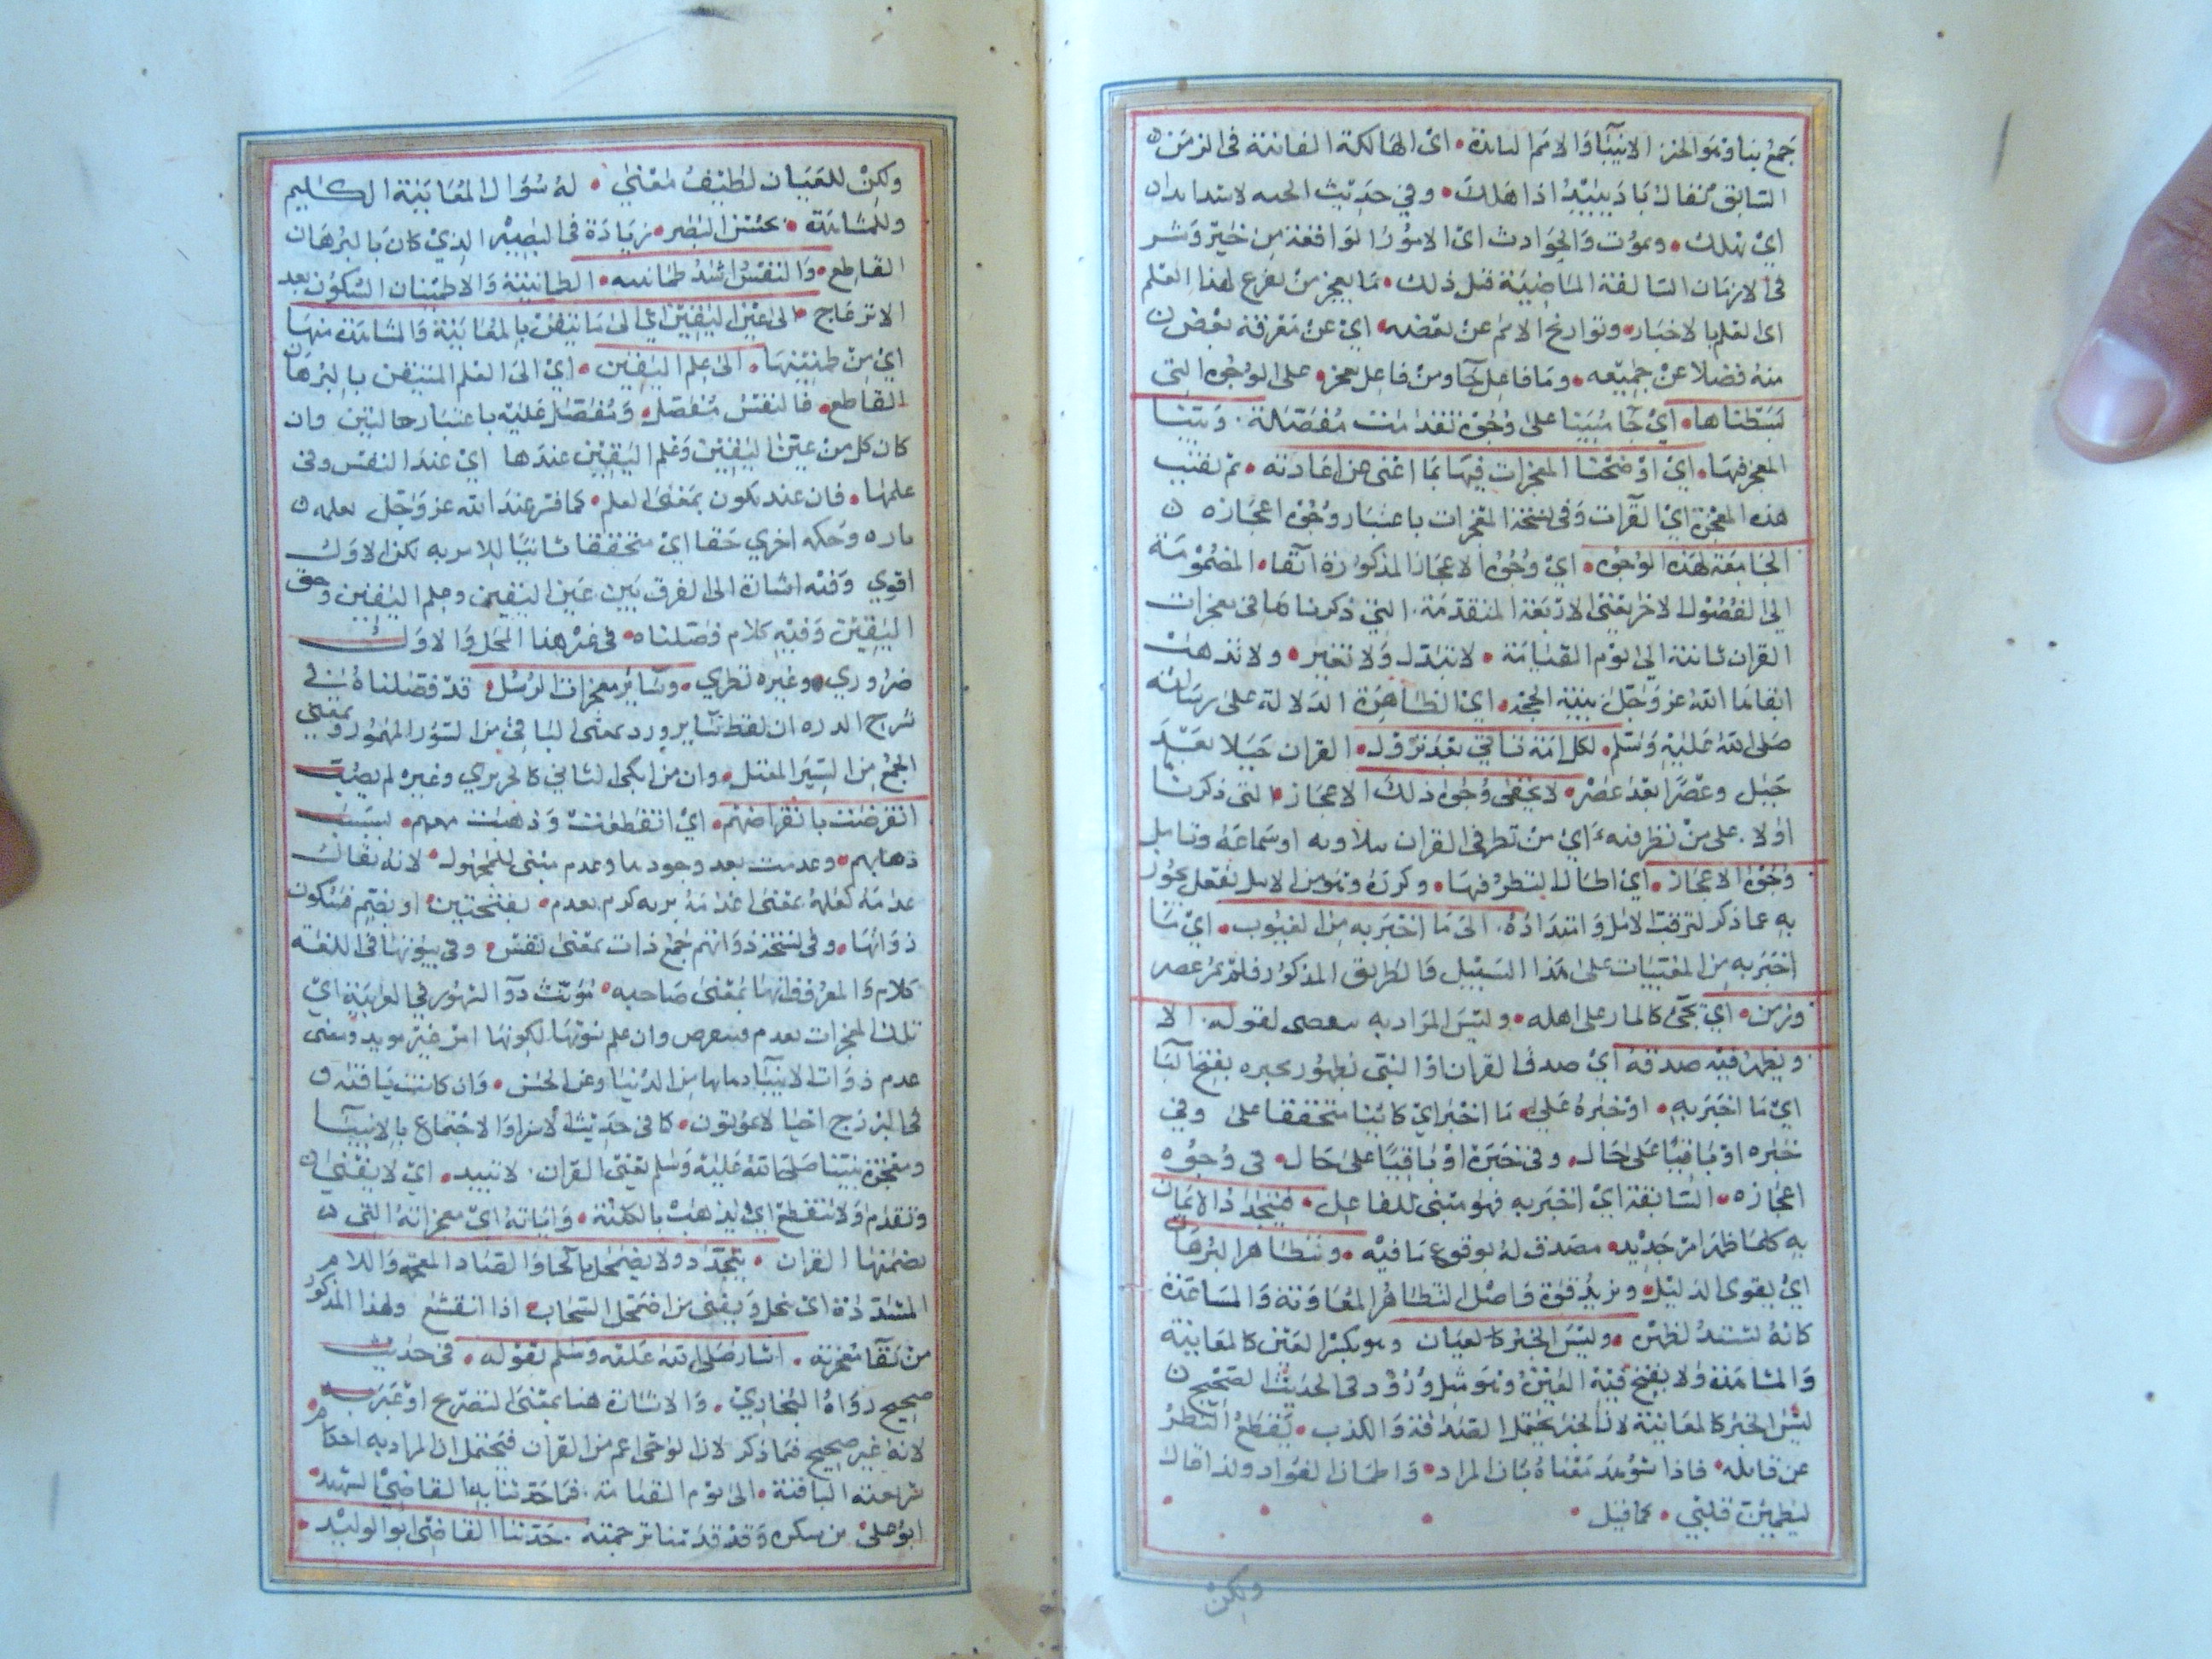 جمع نبا وهو الخبر الانبياء والامم البائدة اي الهالكة الفانية في الزمن
السابق يقال باد يبيد اذا هلك وفي حديث
اي تهلك وتموت والحوادث اي الامور الواقعة من خير وشر
في الازمان السالفة الماضية قبل ذلك ما يعجز من تفرغ لهذا العلم
اي العلم بالاخبار وتواريخ الامم عن بعضه اي عن معرفة بعض
منه فضلا عن جميعه على الوجوه التي
بسطناها اي على وجوه تقدمت مفصلة وبينا
المعجز فيها اي اوضحنا المعجزات فيها بما اغنى عن اعادته
هذه المعجزة اي القرآن وفي نسخة المعجزات باعتبار وجوه اعجازه
الجامعة لهذه الوجوه اي وجوه الاعجاز المذكورة آنفا المضمومة
الى الفصول الاخر يعني الاربعة المتقدمة التي ذكرناها في معجزات
القران ثابتة الى يوم القيامة لا تتبدل ولا تغير ولا تذهب
ابقاها الله عز وجل بينة الحجة اي الظاهرة الدلالة على رسالته
صلى الله عليه وسلم لكل امة تاتي بعد نزول القران جيلا بعد
جيل وعصرا بعد عصر لا يخفى وجوه ذلك الاعجاز التي ذكرنا
اولا على من نظر فيه اي من نظر في القران تلاوة او سماعه وتامل
وجوه الاعجاز اي اطال النظر فيها وكرره
به عما ذكر الى ما اخبر به من الغيوب اي ما
اخبر به من المغيبات على هذا السبيل والطريق المذكور فلم يمر عصر
وزمن اي يجيء كالمار على اهله وليس المراد به لقوله الا
ويظهر فيه صدقه اي صدق القران او النبي بظهور مخبره بفتح الباء
اي ما اخبر به او خبره على ما اخبر اي كائنا متحققا على وفي
خبره او باقيا على حال وفي خبره او باقيا على حال في وجوه
اعجازه السابقة اي اخبر به فهو مبني للفاعل فيتجدد الايمان
به كلما ظهر امر جديد مصدق له بوقوع ما فيه وتتظاهر البرهان
اي يقوى الدليل ويزيد قوة فاصل التظاهر المعاونة والمساعدة
كانه تسند لظهر وليس الخبر كالعيان وهو بكسر العين كالمعاينة
والمشاهدة ولا يفتح فيه العين وورد في الحديث الصحيح
ليس الخبر كالمعاينة لان الخبر يحتمل الصدق والكذب بقطع النظر
عن قايله فاذا شوهد معناه بان المراد واطمان الفؤاد ولذا قال
ليطمئن قلبي كما قيل
ولكن
ولكن للعيان لطيف معنى له سؤال المعاينة الكليم
وللمشاهدة بحسن البصر زيادة في اليقين الذي كان بالبرهان
القاطع والنفس اشد طمانينة الطمانينة والاطمئنان السكون بعد
الانزعاج الى عين اليقين اي الى ما تيقن بالمعاينة والمشاهدة منها
اي من طمانينتها الى علم اليقين اي الى العلم المتيقن بالبرهان
القاطع فالنفس مفضل ومفضل عليه باعتبار حالتين وان
كان كل من عين اليقين وعلم اليقين عندها اي عند النفس وفي
علمها فان عند تكون بمعنى العلم كما فسر عند الله عز وجل بعلمه
تارة وحكمه اخرى حقا اي متحققا ثابتا للامر به لكن الاول
اقوى وفيه اشارة الى الفرق بين عين اليقين وعلم اليقين وحق
اليقين وفيه كلام فصلناه في غير هذا المحل والاول
ضروري وغيره نظري وسائر معجزات الرسل قد فصلناه في
شرح الدرة ان لفظ سائر ورد بمعنى الباقي من السؤر المهموز وبمعنى
الجمع من السير المعتل وان من انكر الثاني كالحريري وغيره لم يصب
انقرضت بانقراضهم اي انقطعت وذهبت معهم بسبب
ذهابهم وعدمت بعد وجودها وعدم مبني للمجهول لانه يقال
عدمه كعلمه بمعنى بعدم بفتحتين او بضم فسكون
ذواتها وفي نسخة ذواتهم جمع ذات بمعنى نفس وفي ثبوتها في اللغة
كلام والمعروف انها بمعنى صاحبه مؤنث ذو المشهور في العربية اي
تلك المعجزات بعدم وان علم ثبوتها لكونها امر غير مؤبد ومعنى
عدم ذوات الانبياء ذهابها من الدنيا وعن الحس وان كانت باقية
في البرزخ احياء لا يموتون كما في حديث الاسراء والاجتماع بالانبياء
ومعجزة نبينا صلى الله عليه وسلم يعني القران لا تبيد اي لا يفنى
وتقدم ولا تنقطع اي يذهب بالكلية واياته اي معجزاته التي
تضمنها القران تتجدد ولا يضمحل بالحاء والضاد المعجمة واللام
المشددة اي ينحل ويفنى من اضمحل السحاب اذا انقشع ولهذا المذكور
من بقاء معجزته اشار صلى الله عليه وسلم بقوله في حديث
صحيح رواه البخاري والاشارة هنا بمعنى التصريح او عبر به
لانه غير صريح فيما ذكر لان الوحي اعم من القران فيحتمل ان المراد به احكام
شريعته الباقية الى يوم القيامة فيما حدثنا به القاضي الشهيد
ابو علي بن سكرة وقد قدمنا ترجمته حدثنا القاضي ابو الوليد